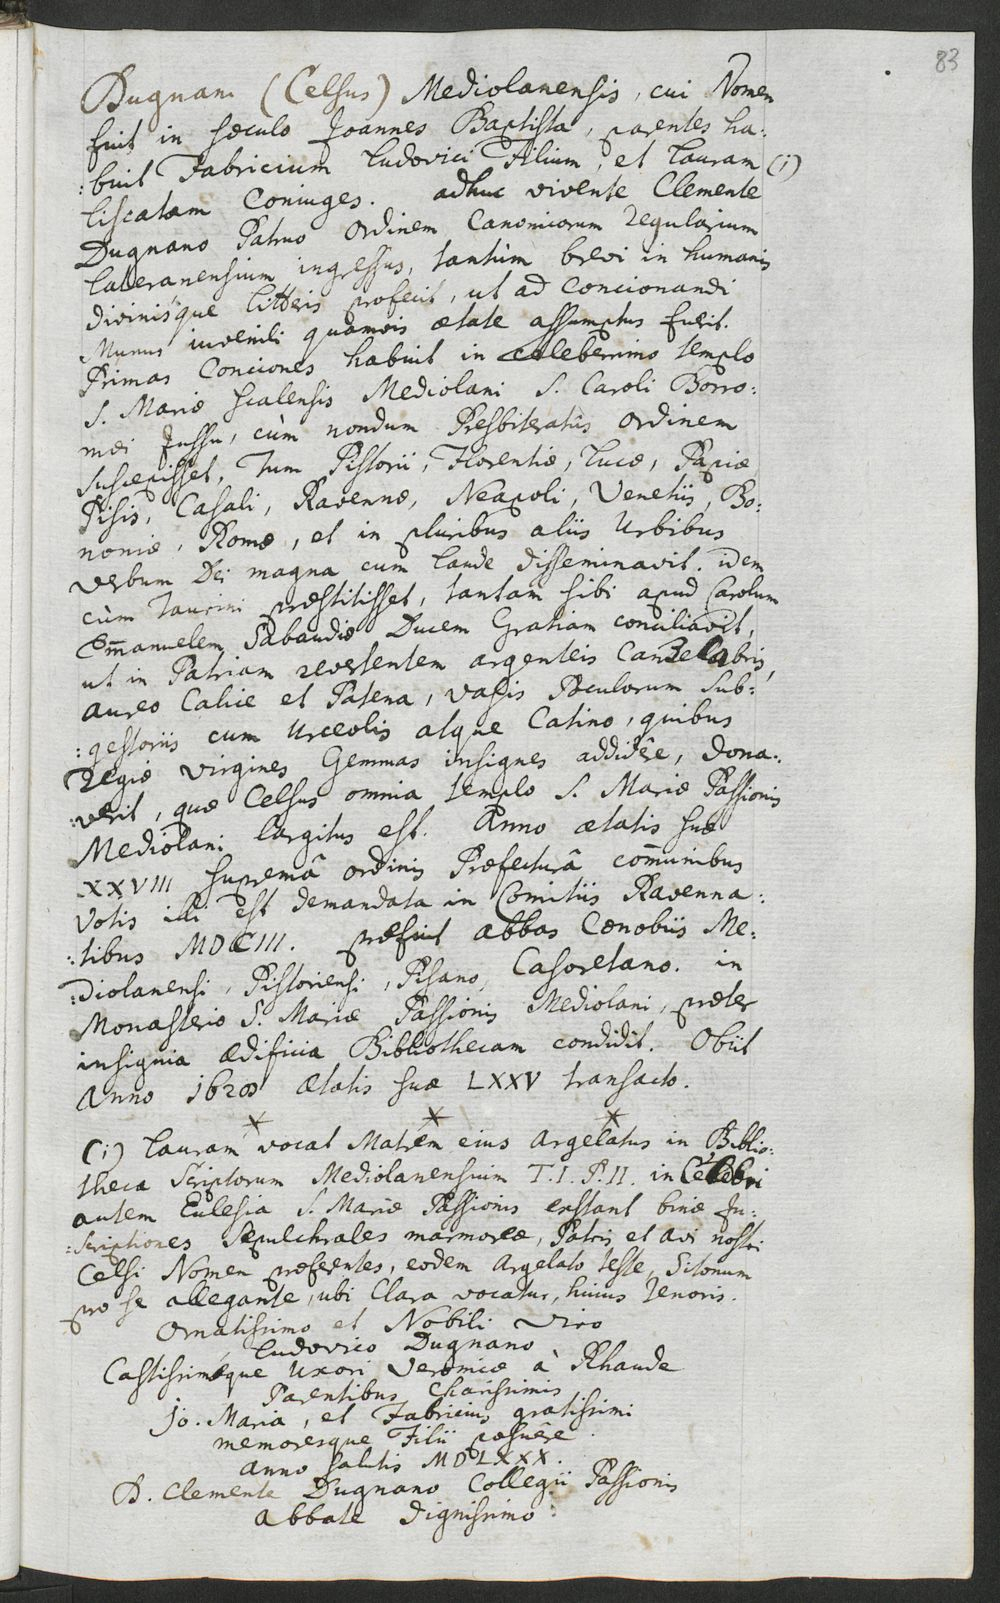 83
Dugnani (Celsus) Mediolanensis, cui Nomen
fuit in sæculo Joannes Baptista, parentes ha:
:buit Fabricium Ludovici Filium, et Lauram (1)
Liscatam Coniuges. adhuc vivente Clemente
Dugnano Patruo Ordinem Canonicorum Regularium
Lateranensium ingressus, tantùm brevi in humanis
divinisque litteris profecit, ut ad Concionandi
Munus iuvenili quamvis ætate assumptus fuerit.
Primas Conciones habuit in celeberrimo templo
S. Mariæ Scalensis Mediolani S. Caroli Borro:
mæi Jussu, cùm nondum Presbiteratûs Ordinem
suscepisset, Tum Pistorii, Florentiæ, Lucæ, Papiæ
Pisis, Casali, Ravennæ, Neapoli, Venetiis, Bo:
noniæ, Romæ, et in pluribus aliis Urbibus
verbum Dei magna cum laude disseminavit. idem
cùm Taurini præstitisset, tantam sibi apud Carolum
Em̄anuelem Sabaudiæ Ducem Gratiam conciliavit,
ut in Patriam revertentem argenteis Candelabris,
aureo Calice et Patena, vasis Poculorum sub:
:gestoriis cum Urceolis atque Catino, quibus
Regiæ virgines Gemmas insignes addidêre, dona:
:verit, quæ Celsus omnia templo S. Mariæ Passionis
Mediolani largitus est. Anno ætatis suæ
XXVIII supremâ ordinis Præfecturâ com̄unibus
votis illi est demandata in Comitiis Ravenna:
:tibus MDCIII. præfuit abbas Cœnobiis Me:
:diolanensi, Pistoriensi, Pisano, Casoretano. in
Monasterio S. Mariæ Passionis Mediolani, præter
insignia ædificia Bibliothecam condidit. Obiit
Anno 1628 ætatis suæ LXXV transacto.
* * *
(1) Lauram vocat Matrem eius Argelatus in Biblio:
theca Scriptorum Mediolanensium T. I. P. II. in Celebri
autem Eclesia S. Mariæ Passionis exstant binæ In:
:scriptiones Sepulchrales marmoreæ, Patris et Avi nostri
Celsi Nomen præferentes, eodem Argelato teste, Sitonum
pro se allegante, ubi Clara vocatur, huius tenoris.
Ornatissimo et Nobili Viro
Ludovico Dugnano
Castissimæque Uxori Veronicæ à Rhaude
Parentibus Charissimis
Jo. Maria, et Fabricius gratissimi
memoresque Filii posuêre.
Anno salutis MDLXXX.
D. Clemente Dugnano Collegii Passionis
Abbate dignissimo: